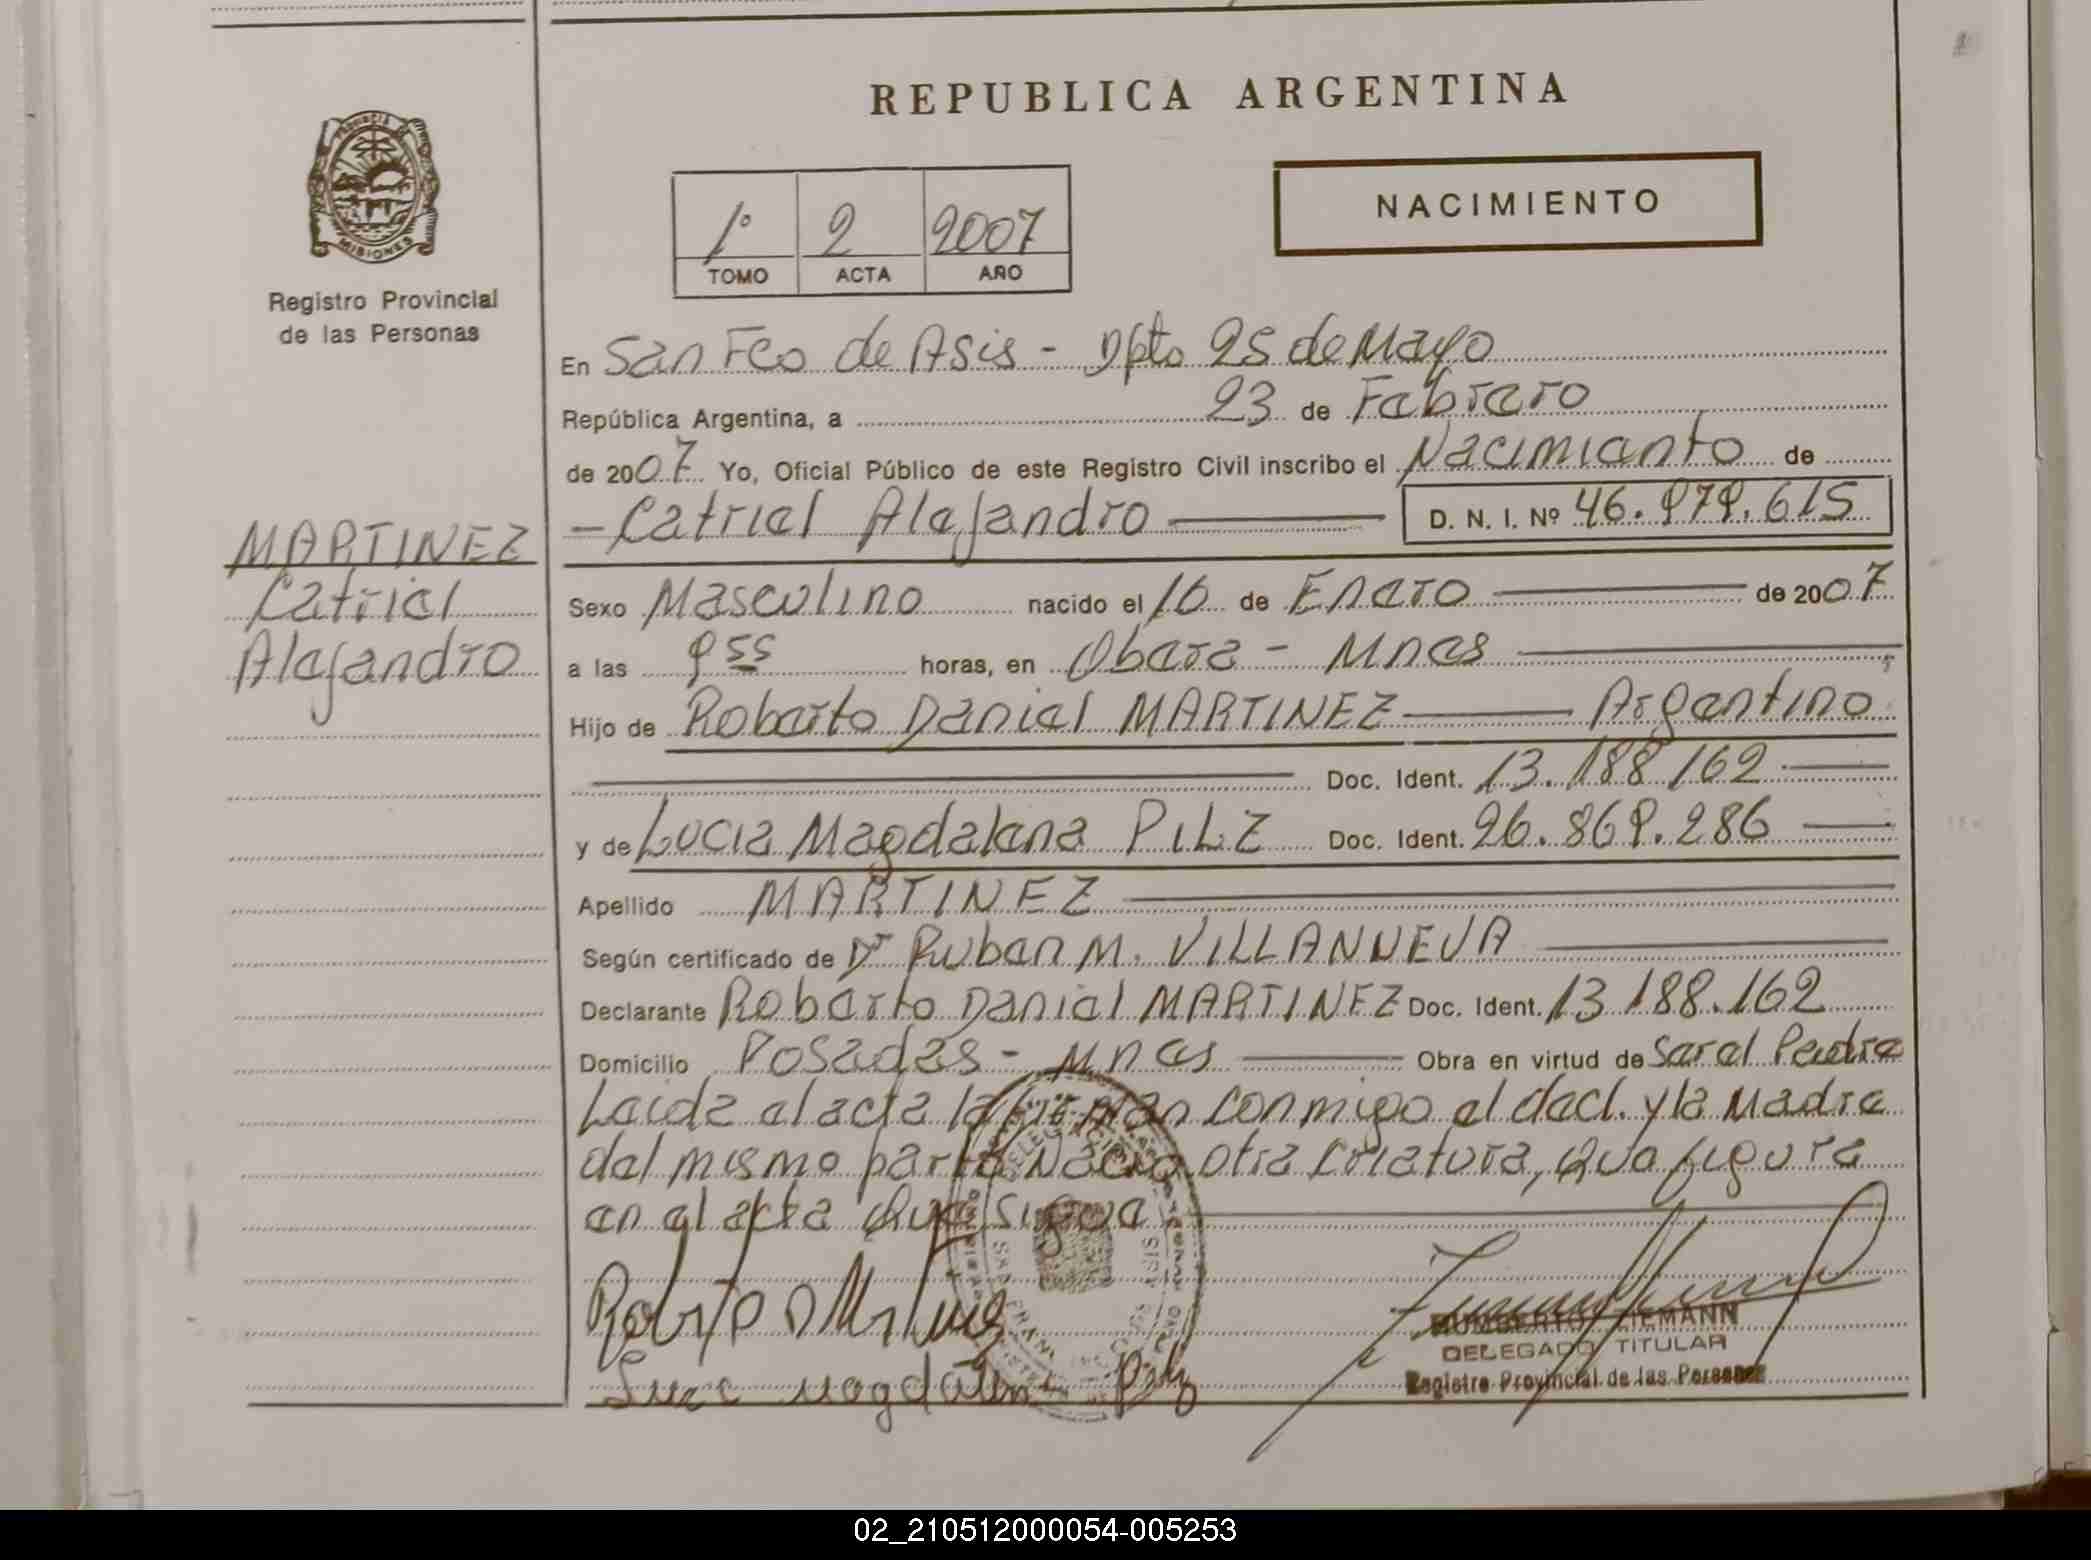 REPUBLICA ARGENTINA
PROVINCIA DE MISIONES
Registro Provincial
de las Personas
1º 2 2007
TOMO ACTA AÑO
NACIMIENTO
En San Fco de Asis - Dpto 25 de Mayo
República Argentina, a 23 de Febrero
de 2007 Yo, Oficial Público de este Registro Civil inscribo el Nacimiento de
- Catriel Alejandro D. N. I. Nº 46.979.615
MARTINEZ
Catriel
Alejandro
Sexo Masculino nacido el 16 de Enero de 2007
a las 9 55 horas, en Obera - Mnes
Hijo de Roberto Daniel MARTINEZ Argentino
Doc. Ident. 13.188.162
y de Lucia Magdalena PILZ Doc. Ident. 26.869.286
Apellido MARTINEZ
Según certificado de Dr Ruben M. VILLANUEVA
Declarante Roberto Daniel MARTINEZ Doc. Ident. 13.188.162
Domicilio Posadas - Mnes Obra en virtud de Ser el Padre
Leida el acta la firman conmigo el decl. y la Madre
del mismo parto Nacio otra criatura, que figura
en el acta que sigue
Roberto D Martinez
Magdalena Pilz
HUMBERTO ZIEMANN
DELEGADO TITULAR
Registro Provincial de las Personas
02_210512000054-005253